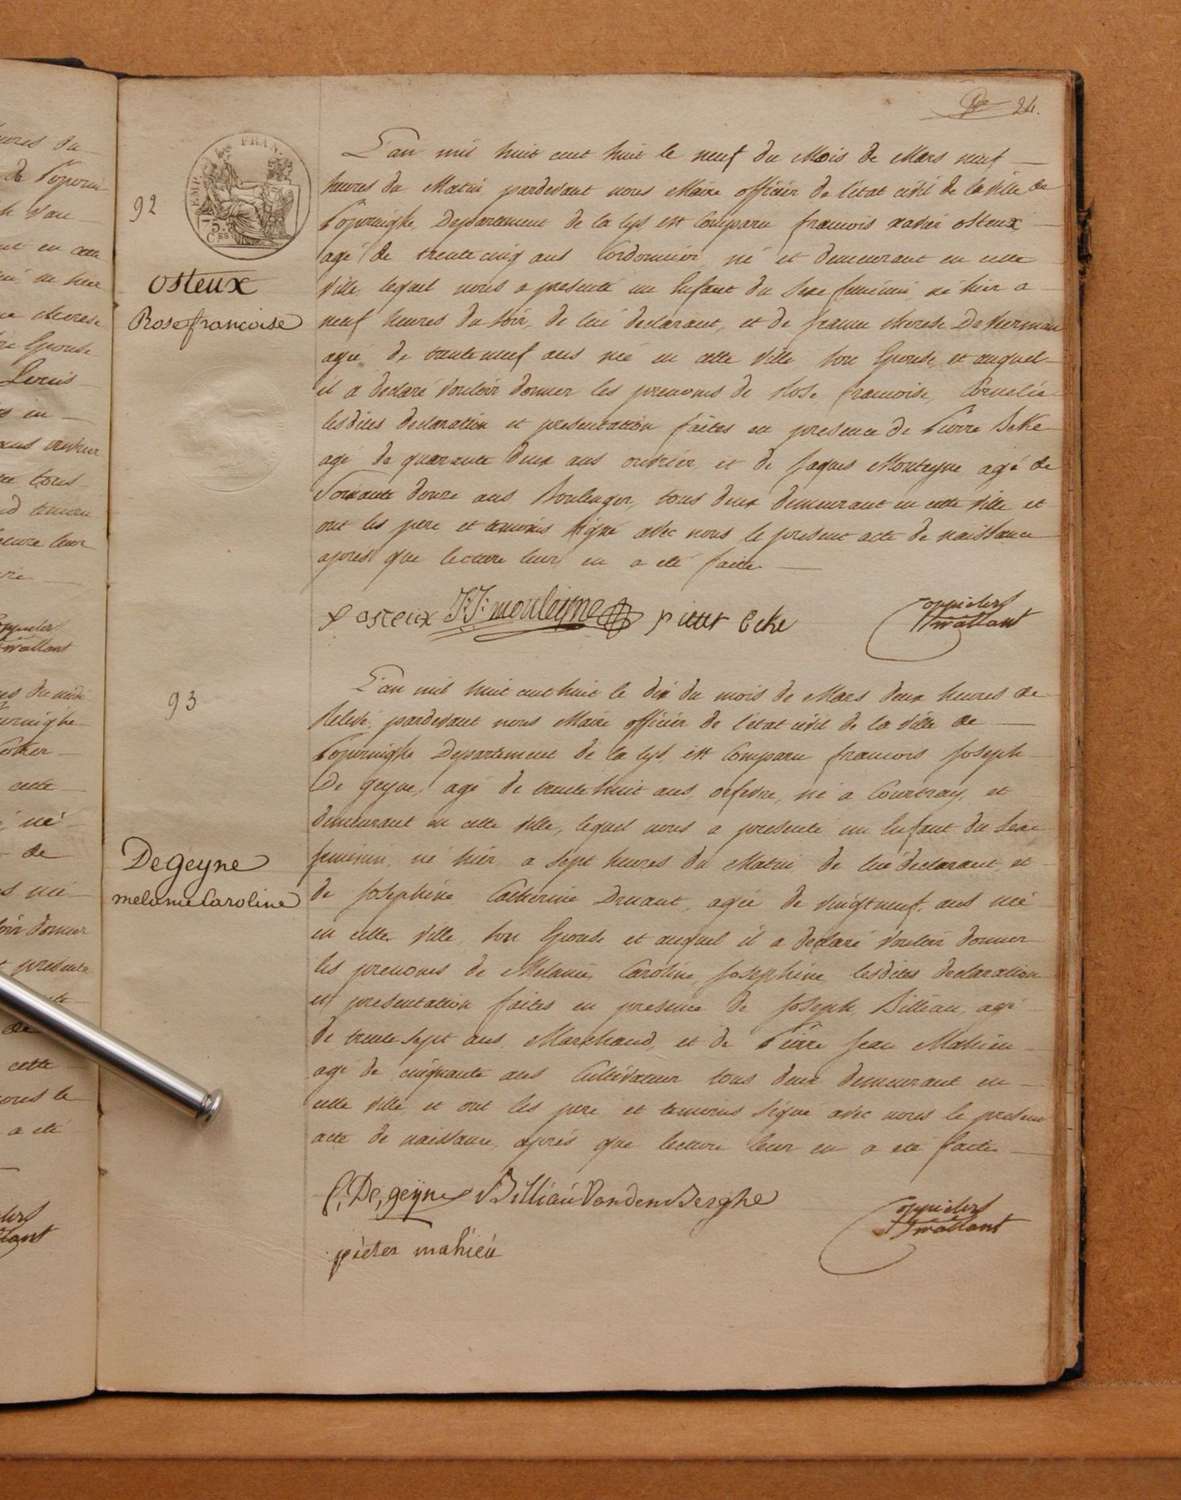 24.
92
Osteux
Rose françoise
L'an mil huit cent huit le neuf du Mois de Mars neuf
heures du Matin pardevant nous Maire officier de l'état civil de la Ville de
Poperinghe, Departement de la Lys est Comparu francois xavier osteux
agé de trente cinq ans Cordonnier, né et demeurant en cette
Ville, lequel nous a presenté un Enfant du Sexe feminin, né hier a
neuf heures du soir, de lui declarant, et de
agée de trente neuf ans née en cette Ville son Epouse, et auquel
il a declaré Vouloir donner les prenoms de Rose, francoise, Cornelia
lesdites declaration et presentation faites en presence de Pierre Beke
agé de quarante deux ans ouvrier, et de Jaques Mouleyne agé de
Soixante douze ans Boulenger, tous deux demeurant en cette Ville et
ont les pere et temoins Signé avec nous le present acte de naissance
apres que lecture leur en a eté faite.
x osteux J: J: mouleijne pieter beke
93
Degeyne
melanie Caroline
L'an mil huit cent huit le dix du mois de Mars deux heures de
Relevé, pardevant nous Maire officier de l'état civil de la Ville de
Poperinghe Departement de la Lys, est Comparu francois Joseph
De geyne, agé de trente huit ans, orfevre, né a Courtray, et
demeurant en cette Ville, lequel nous a presenté un Enfant du Sexe
feminin, né hier a Sept heures du Matin de lui declarant, et
de Josephine Catherine Druant, agée de Vingt neuf ans née
en cette Ville, son Epouse et auquel il a declaré Vouloir donner
les prenoms de Melanie, Caroline, Josephine lesdites declaration
et presentation faites en presence de Joseph Billiau, agé
de trente sept ans, Markhand, et de Pierre Jean Mahieu
agé de cinquante ans Cultivateur tous deux demeurant en
cette Ville et ont les pere et temoins Signé avec nous le present
acte de naissance, après que lecture leur en a eté faite.
f, De, geijne J Billiau VandenBerghe
pieter mahieu